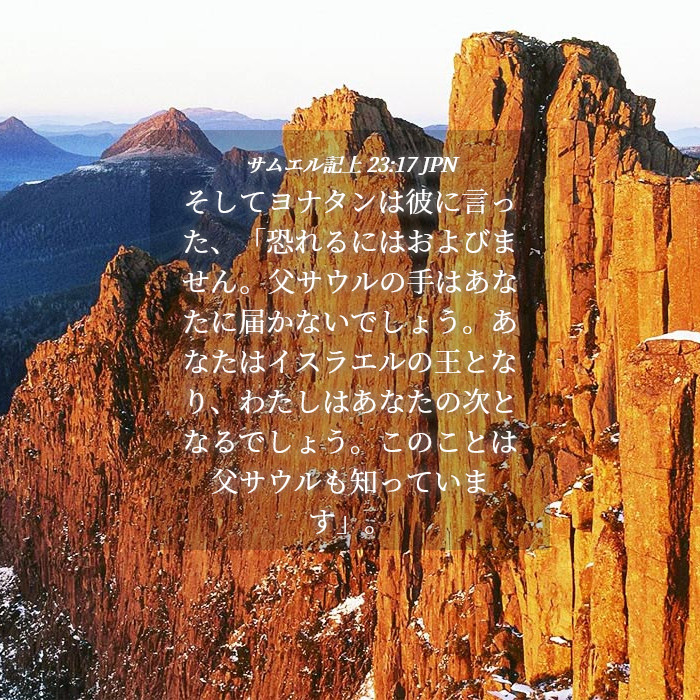 サムエル記上 23:17 JPN
そしてヨナタンは彼に言っ
た、「恐れるにはおよびま
せん。父サウルの手はあな
たに届かないでしょう。あ
なたはイスラエルの王とな
り、わたしはあなたの次と
なるでしょう。このことは
父サウルも知っていま
す」。